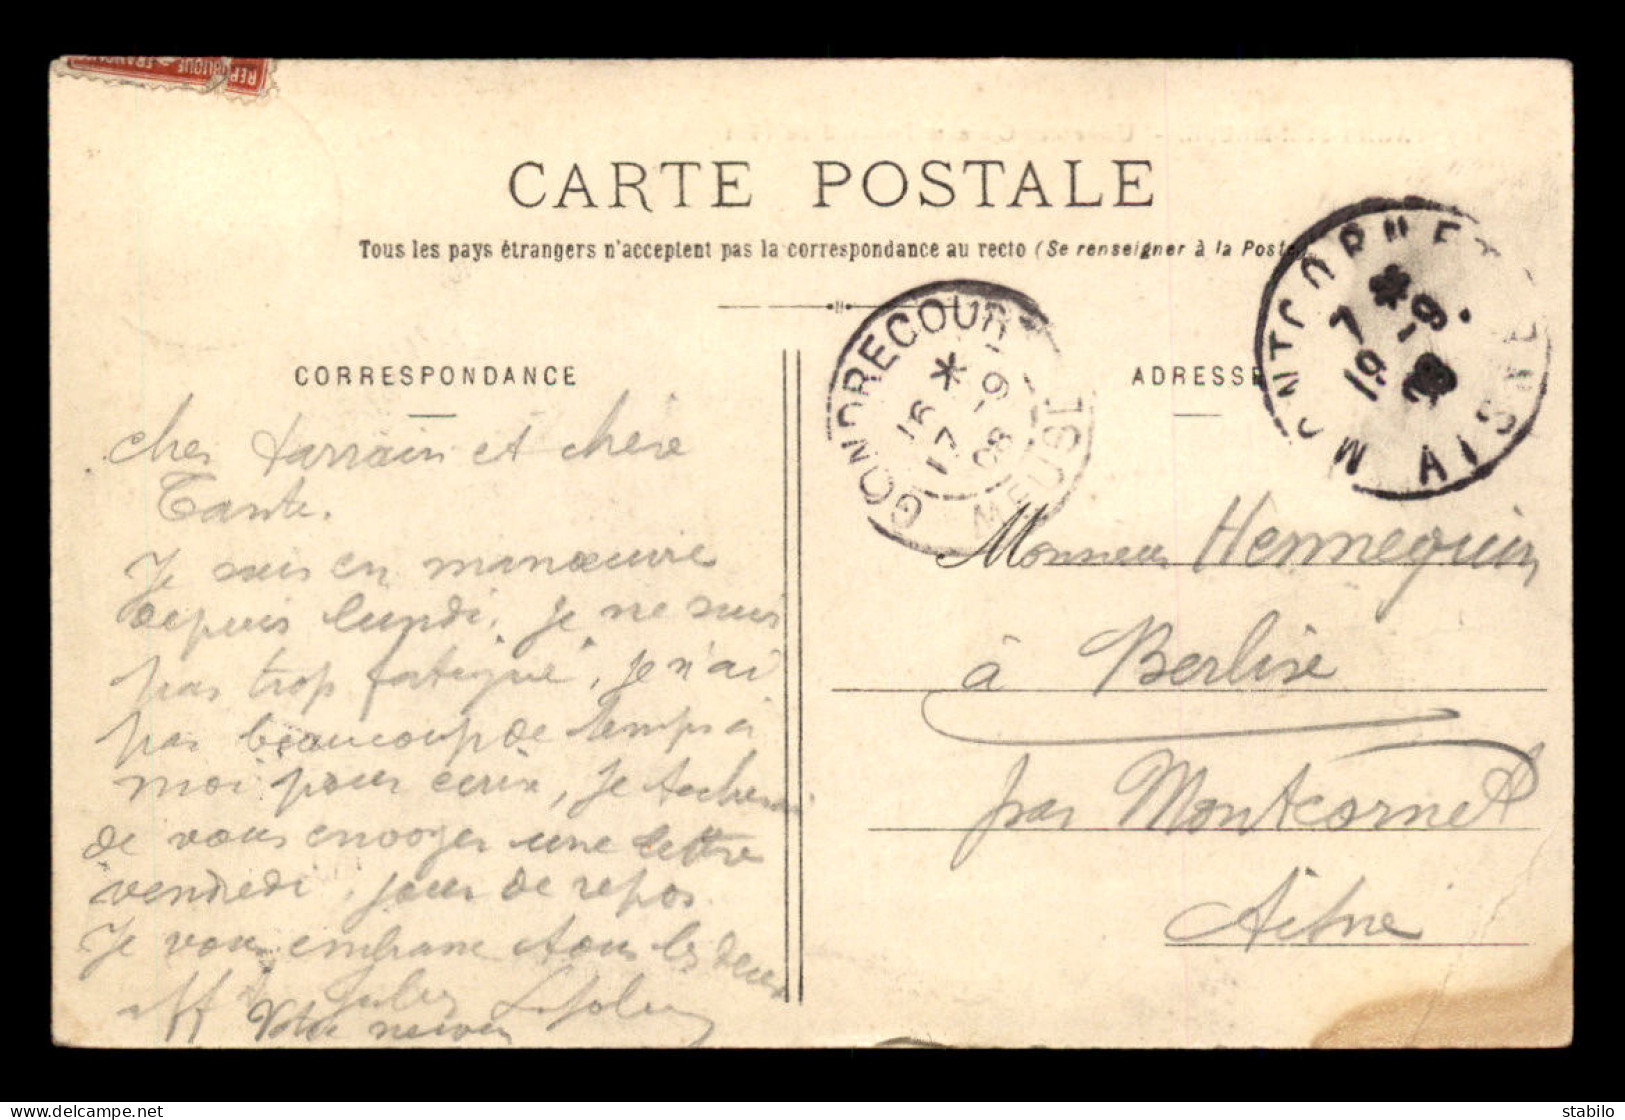 REPUBLIQUE FRANÇAISE
CARTE POSTALE
Tous les pays étrangers n'acceptent pas la correspondance au recto (Se renseigner à la Poste)
CORRESPONDANCE
ADRESSE
GONDRECOURT
16 -9
17 08
MEUSE
MONTCORNET
7 -9
19
AISNE
cher parrain et chère
Tante.
Je suis en manœuvre
depuis lundi, je ne suis
pas trop fatigué, je n'ai
pas beaucoup de temps à
moi pour écrire, je tacherai
de vous envoyer une lettre
vendredi, jour de repos.
Je vous embrasse tous les deux
Votre neveu
Monsieur Hennequin
à Berlise
par Montcornet
Aisne
stabilo